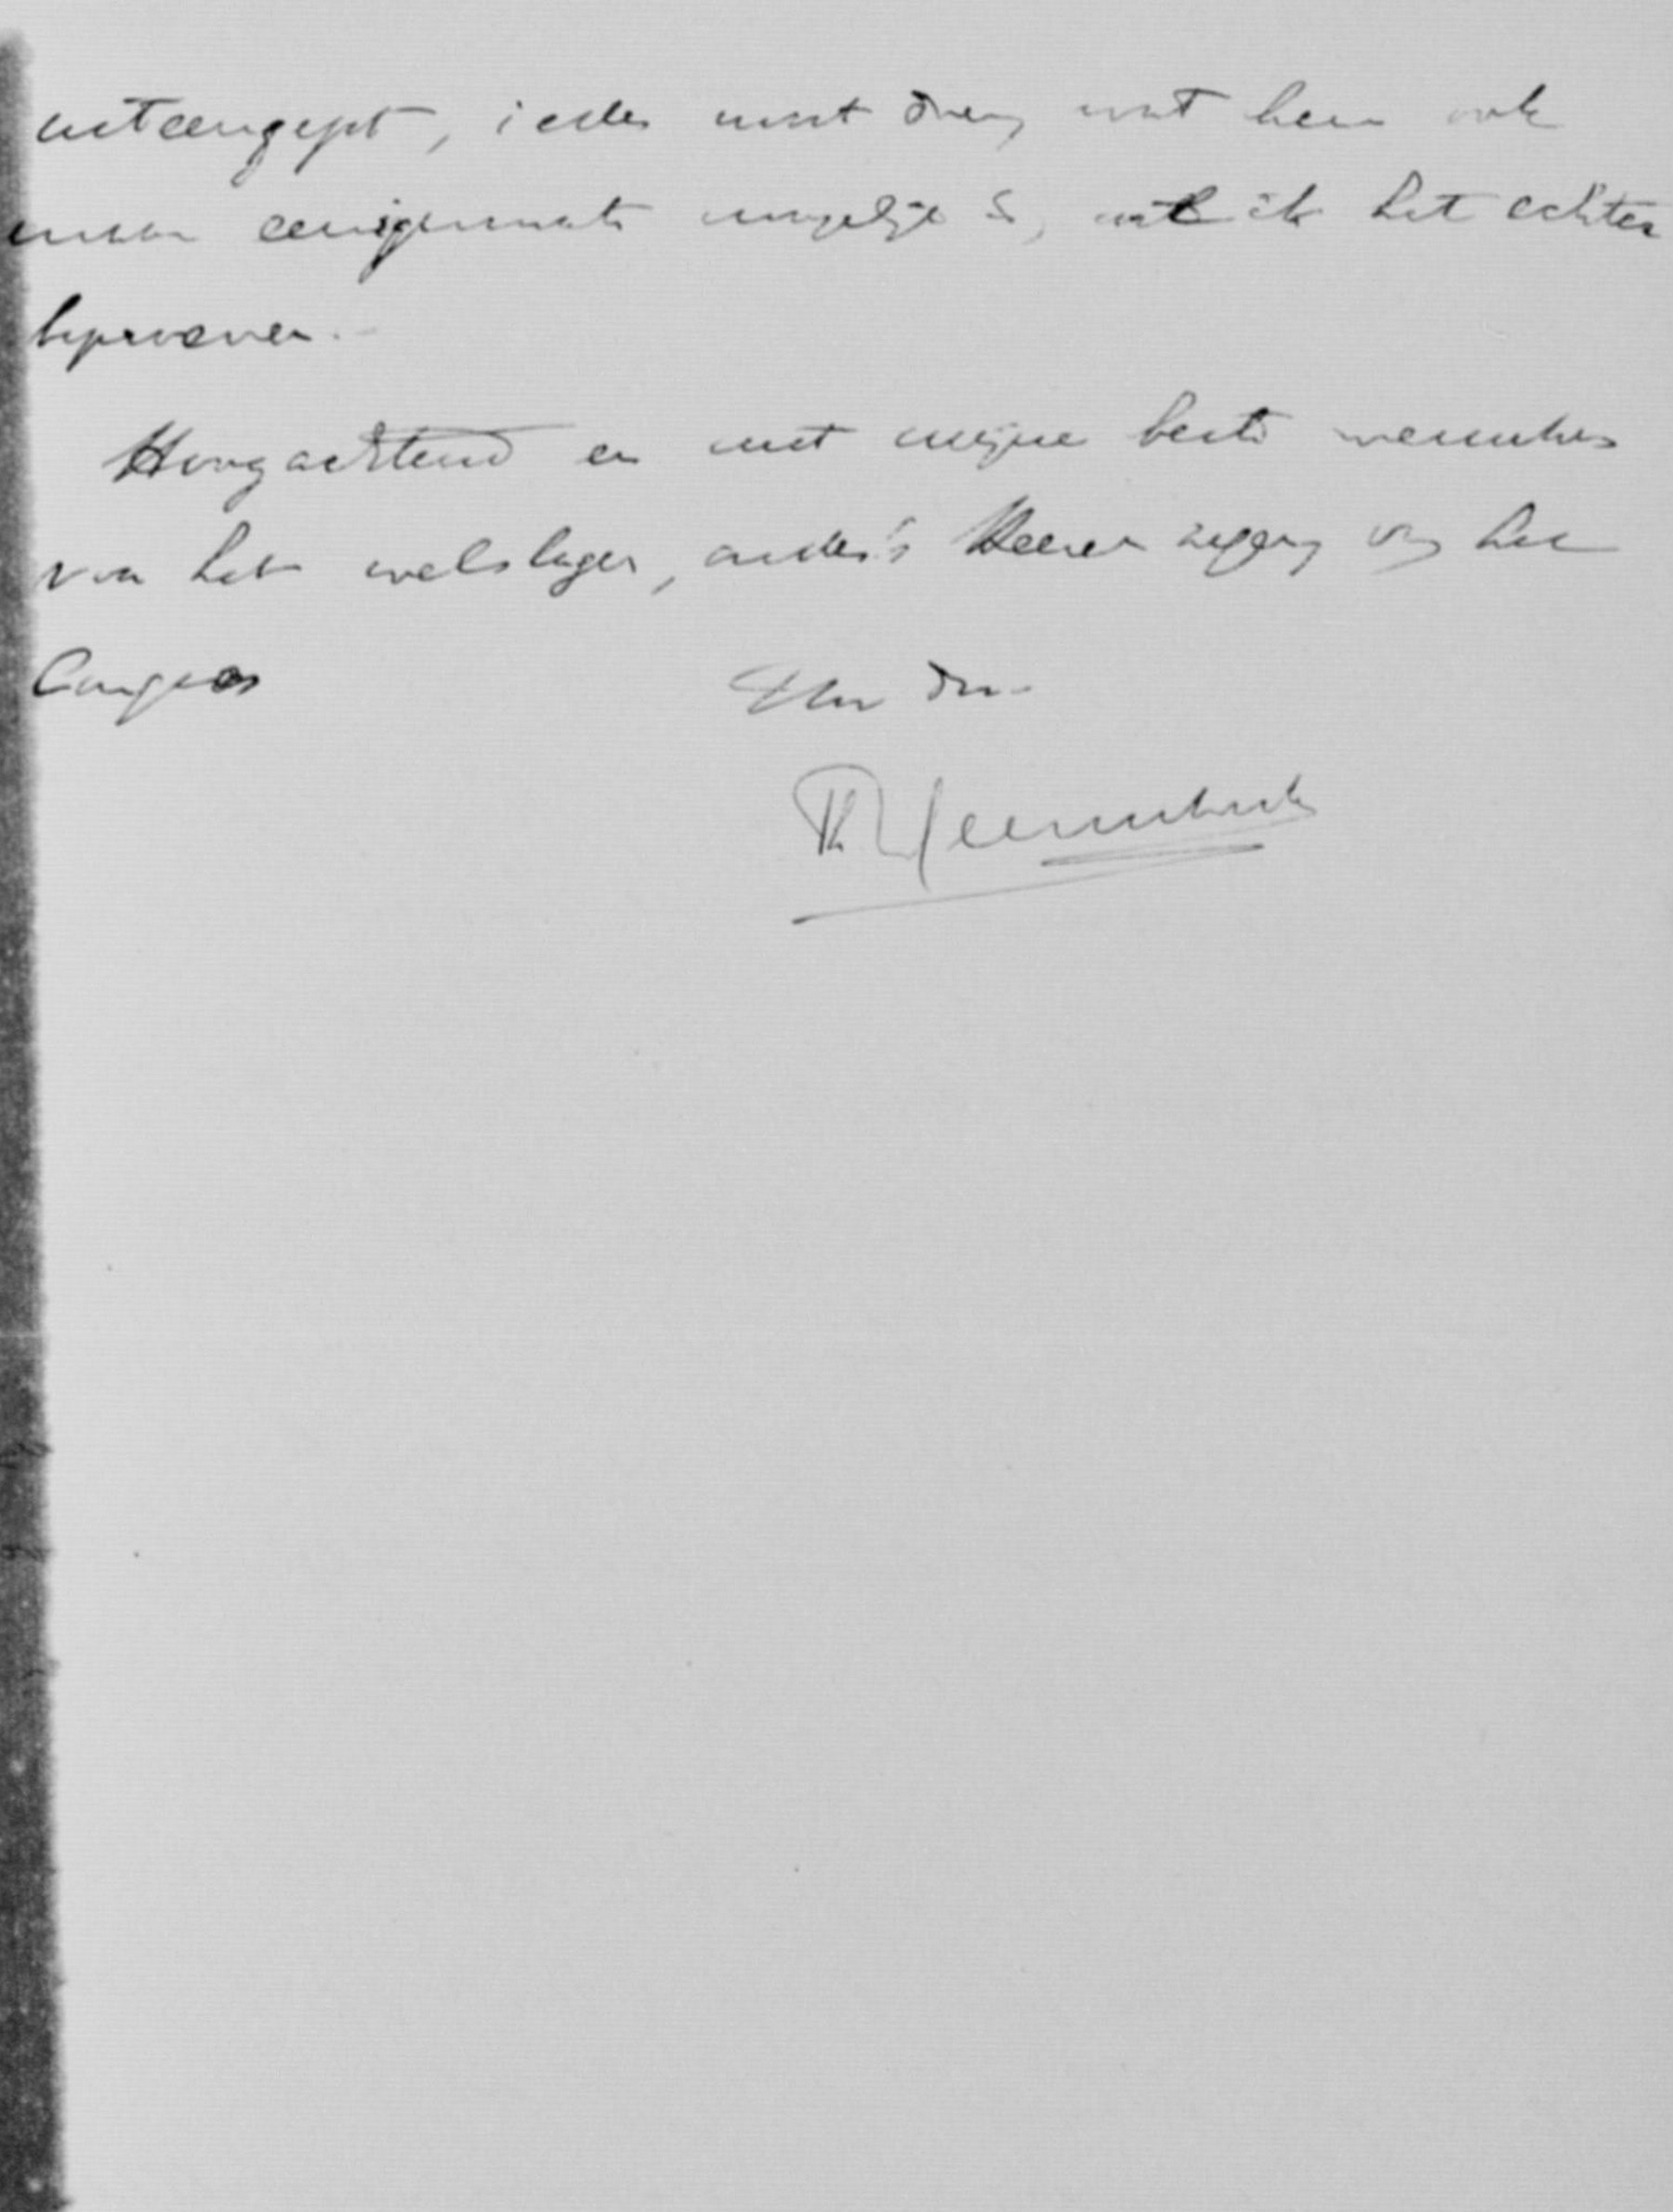 uiteengezet, ieder moet doen wat hem ook
maar eenigermate mogelijk is, wil ik het echter
beproeven.
Hoogachtend en met mijne beste wenschen
voor het welslagen, onder 's Heeren zegen, van het
Congres
Uw dw.
Th Heemskerk